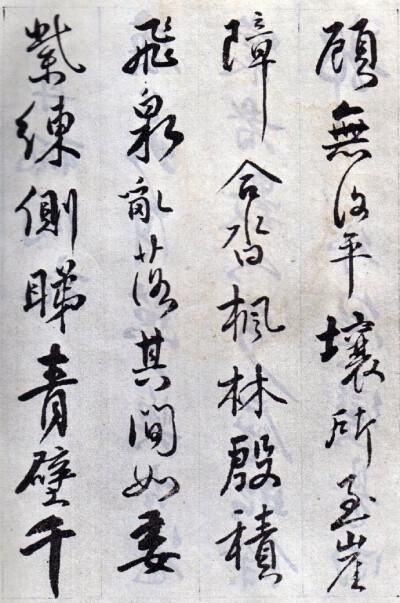 顧無복平壤所至崖
障合沓楓林殷積
飛泉亂落其間如委
紫練側睇青壁千